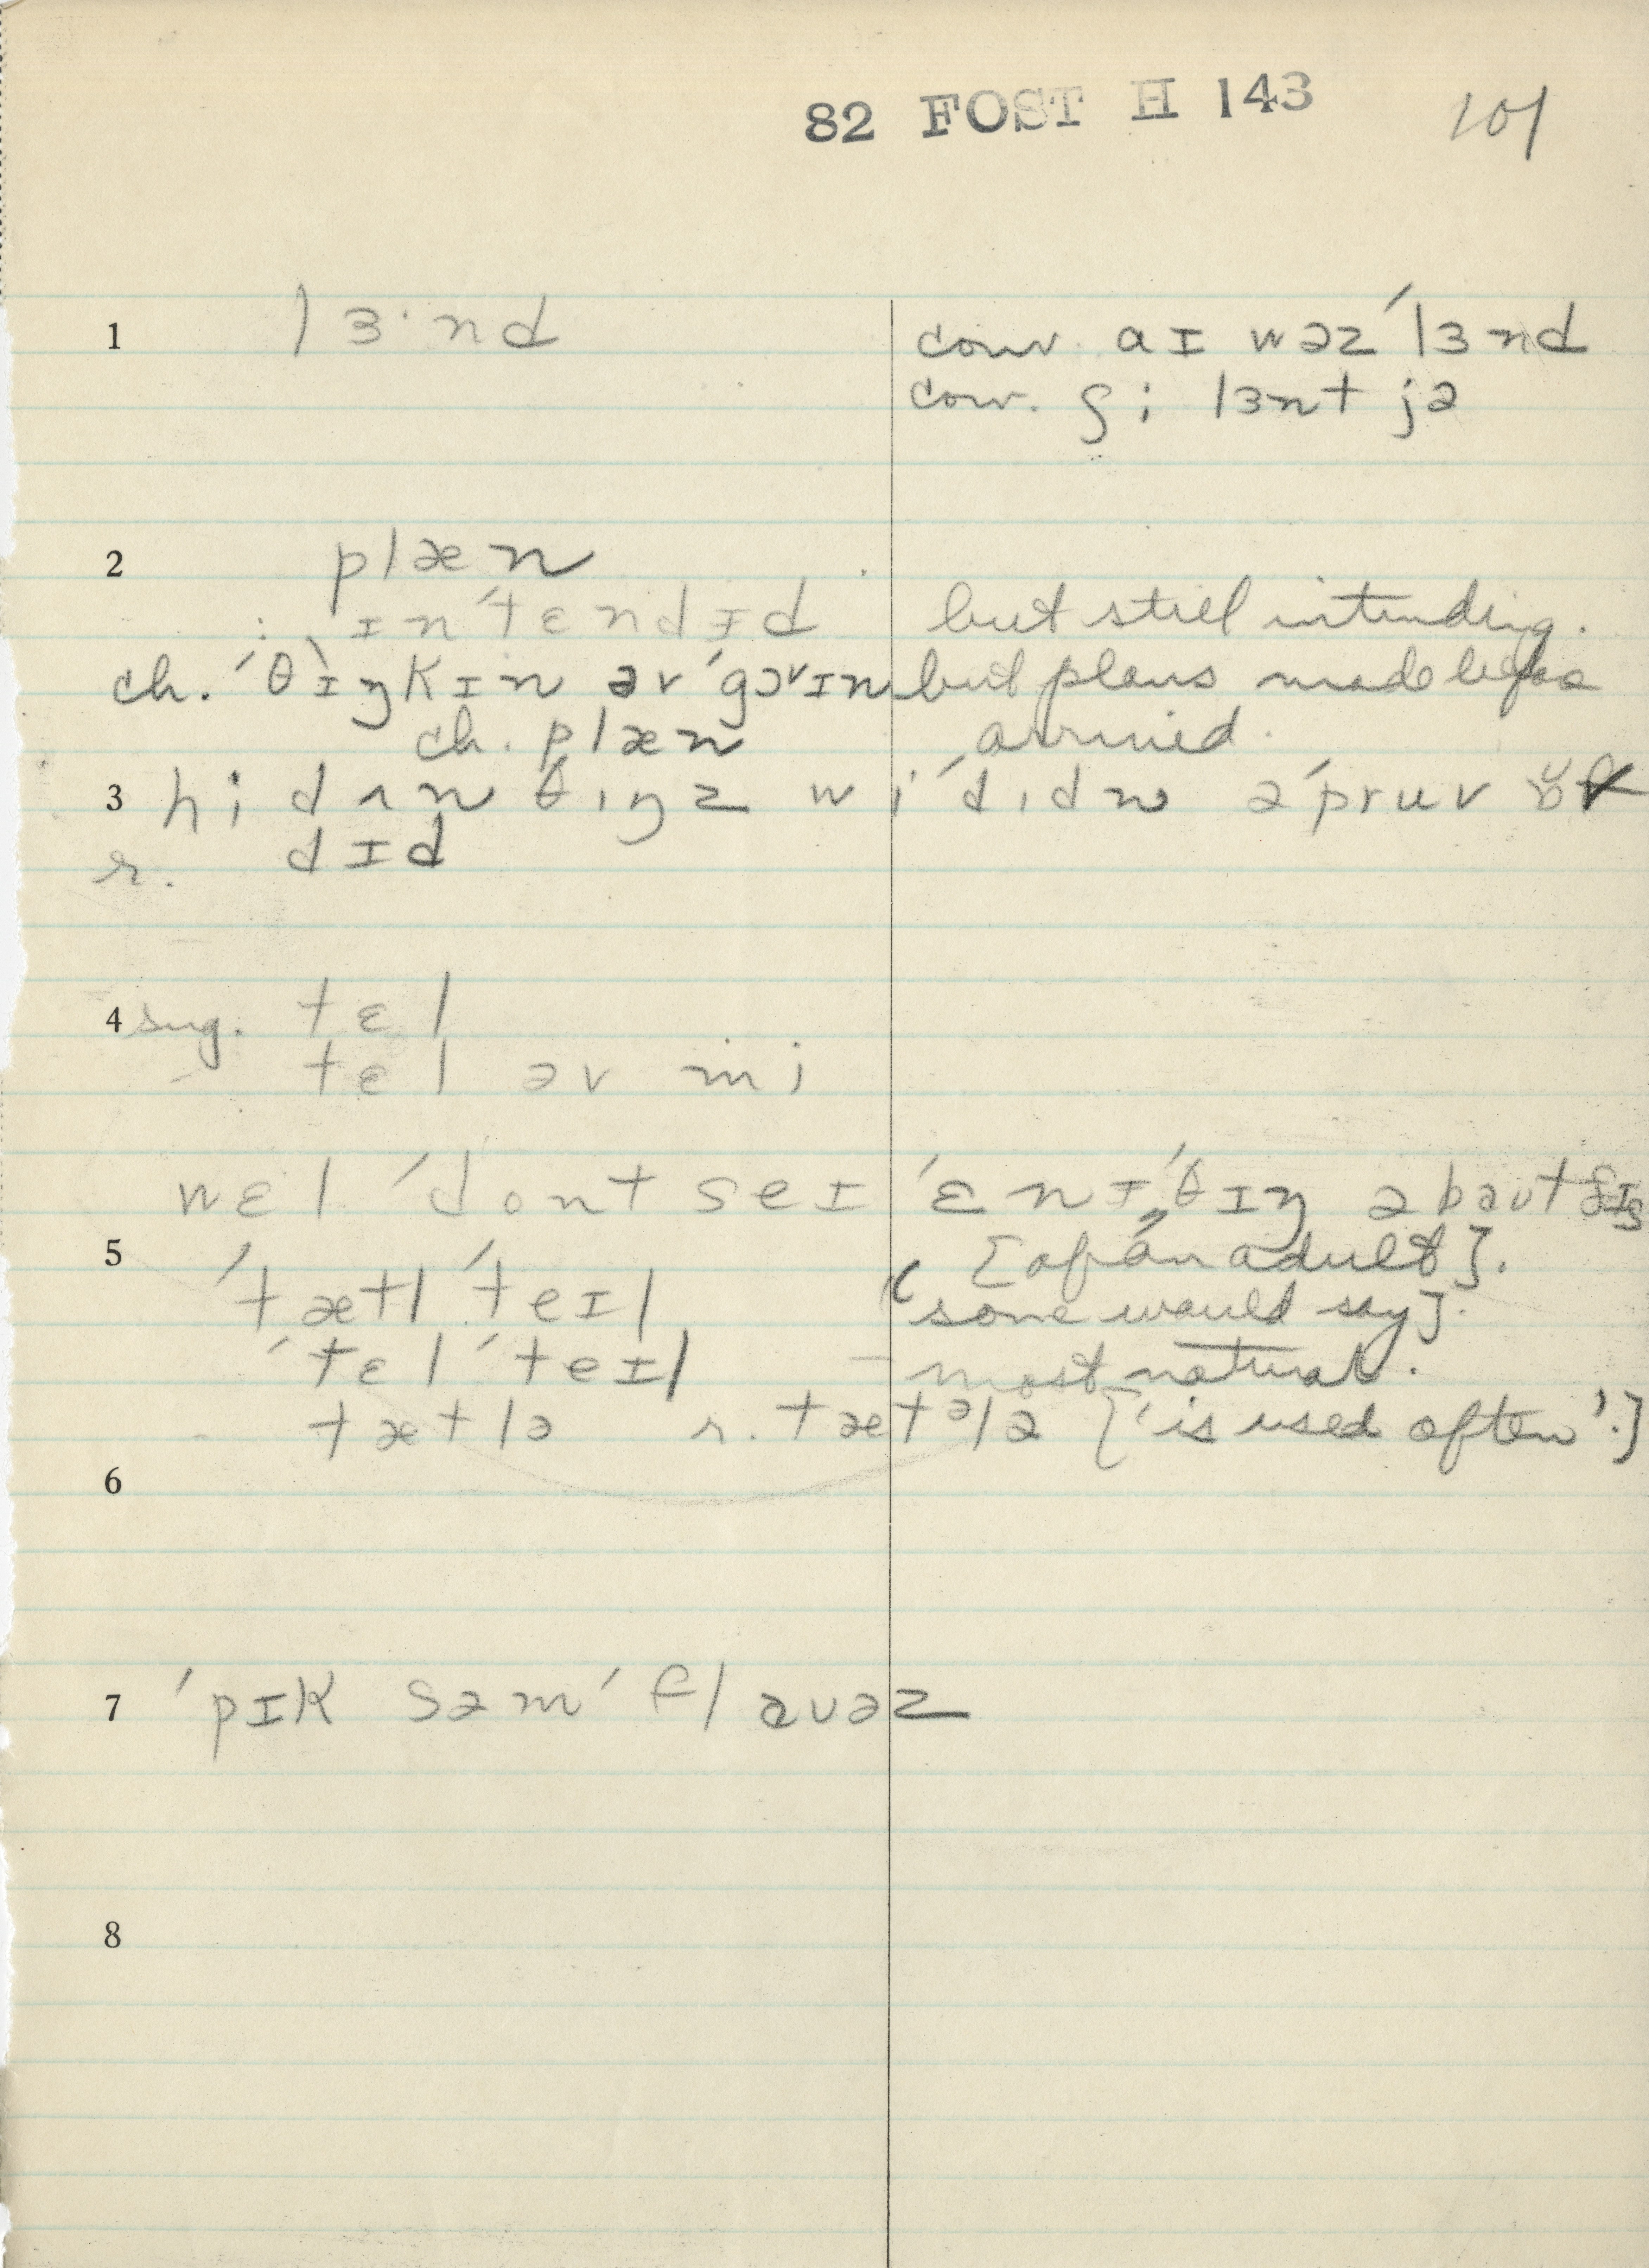 82 FOST H 143 101
1 lɜ·nd conv. aɪ wəz ˈlɜnd
conv. ʃi lɜnt jə
2 plæn
: ɪnˈtɛndɪd but still intending.
ch. ˈθɪŋkɪn əv ˈgɔvɪn but plans made before
ch. plæn arrived.
3 hi dʌn θɪŋz wi ˈdɪdn əˈpruv
r. dɪd
4 sug. tɛl
- tɛl əv mi
wɛl ˈdont seɪ ˈɛnɪˌθɪŋ əbaut ðɪs
5 [of an adult].
ˈtætl ˈteɪl (some would say].
ˈtɛl ˈteɪl – most natural.
- tætlə r. tætᵊlə ['is used often'.]
6
7 ˈpɪk səm ˈflauəz
8